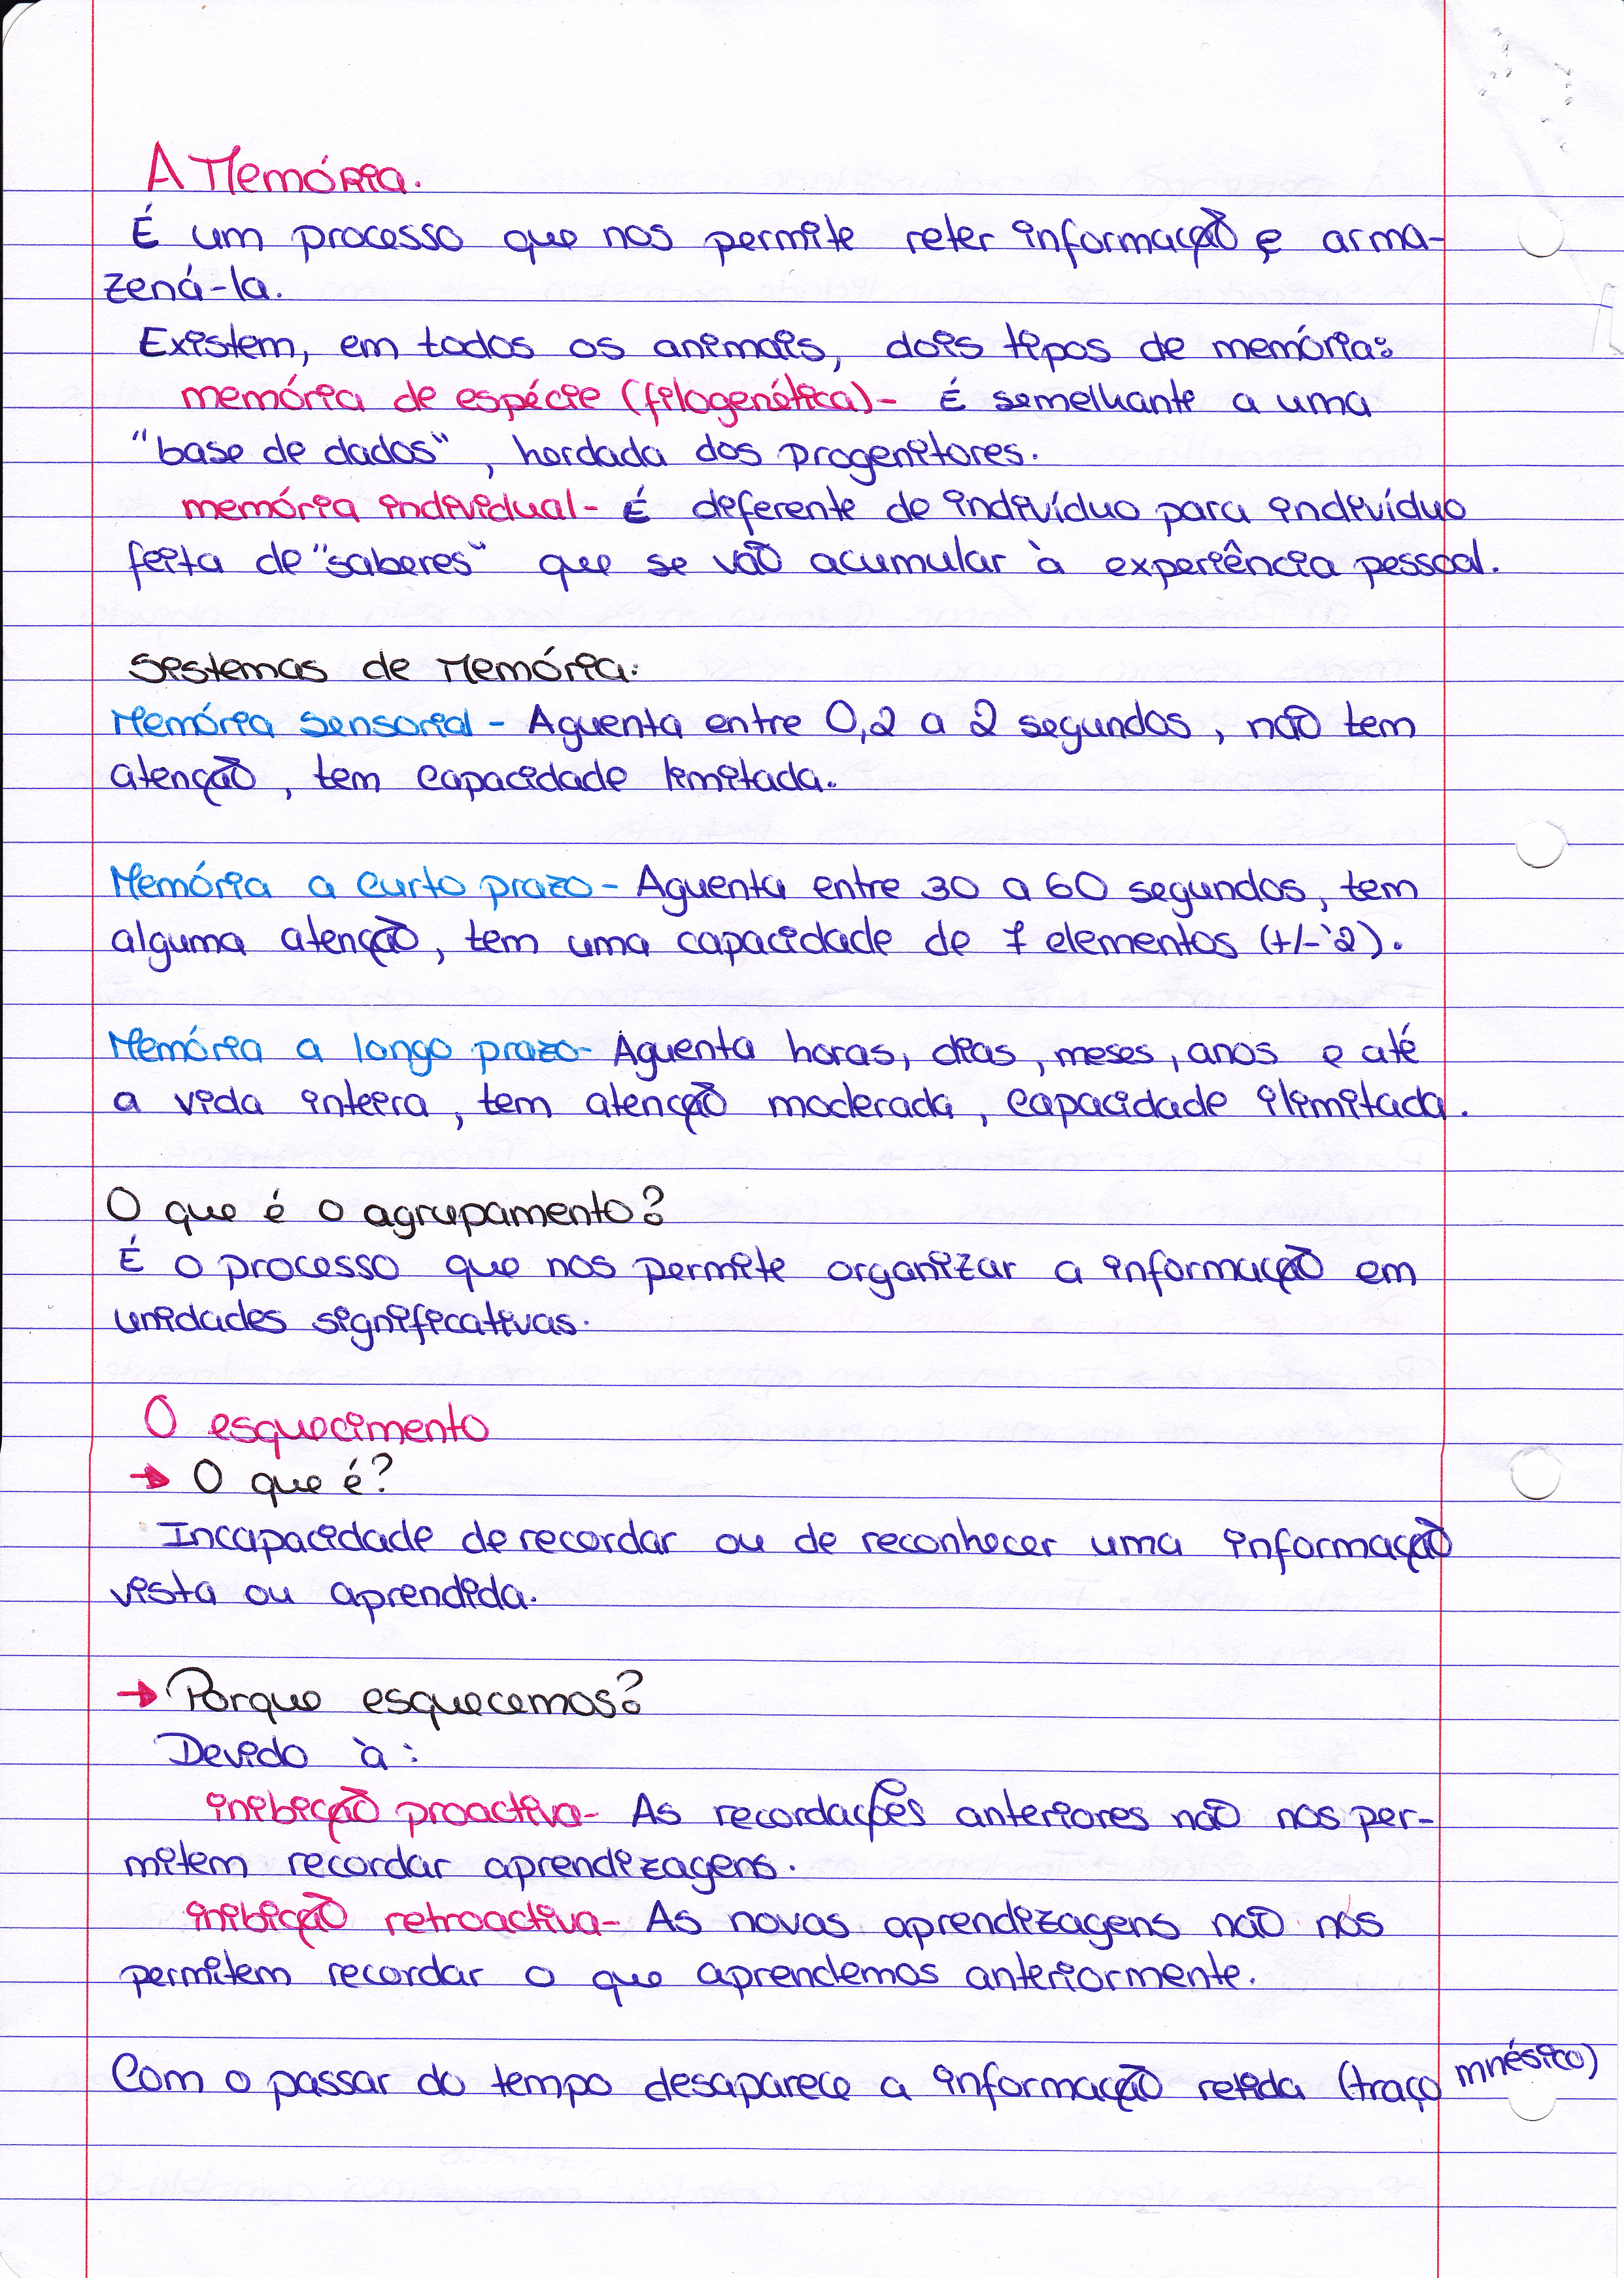 A Memória.
É um processo que nos permite reter informação e arma-
zená-la.
Existem, em todos os animais, dois tipos de memória:
memória de espécie (filogenética)- É semelhante a uma
"base de dados", herdada dos progenitores.
memória individual- É deferente de indivíduo para indivíduo
feita de "saberes" que se vão acumular à experiência pessoal.
Sistemas de Memória:
Memória Sensorial - Aguenta entre 0,2 a 2 segundos, não tem
atenção, tem capacidade limitada.
Memória a curto prazo - Aguenta entre 30 a 60 segundos, tem
alguma atenção, tem uma capacidade de 7 elementos (+/- 2).
Memória a longo prazo- Aguenta horas, dias, meses, anos e até
a vida inteira, tem atenção moderada, capacidade ilimitada.
O que é o agrupamento?
É o processo que nos permite organizar a informação em
unidades significativas.
O esquecimento
→ O que é?
Incapacidade de recordar ou de reconhecer uma informação
vista ou aprendida.
→ Porque esquecemos?
Devido à:
inibição proactiva- As recordações anteriores não nos per-
mitem recordar aprendizagens.
inibição retroactiva- As novas aprendizagens não nos
permitem recordar o que aprendemos anteriormente.
Com o passar do tempo desaparece a informação retida (traço mnésico)